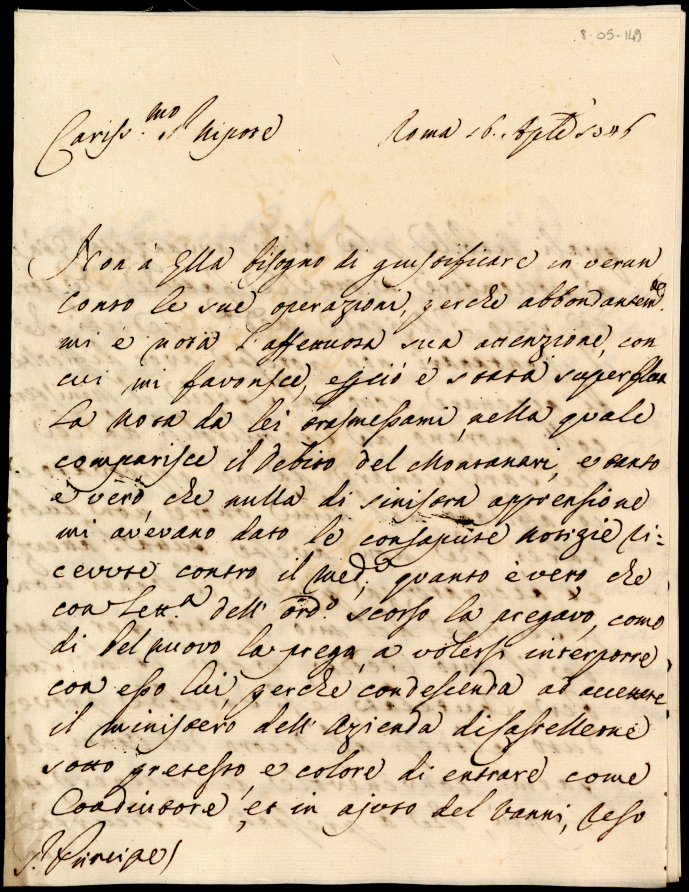 8-05-149
Cariss.mo S.r Nipote Roma 16. Aple
Non à Ella bisogno di giustificare in verun
conto le sue operazioni, perche abbondantem.te
mi è nota l'affettuosa sua attenzione, con
cui mi favorisce, e perciò è stata superflua
La nota da lei trasmessami, nella quale
comparisce il Debito del Montanari, e tanto
è vero, che nulla di sinistra apprensione
mi avevano dato le consapute notizie ri=
cevute contro il med.o, quanto è vero, che
con Lett.a dell' ord.o scorso la pregavo, come
di bel nuovo la prego, a volersi interporre
con esso lui, perche condescenda ad accettare
il ministero dell' Azienda di Castellerne
sotto pretesto e colore di entrare come
Coadiutore, et in ajuto del Vanni, reso
S.r Principe /